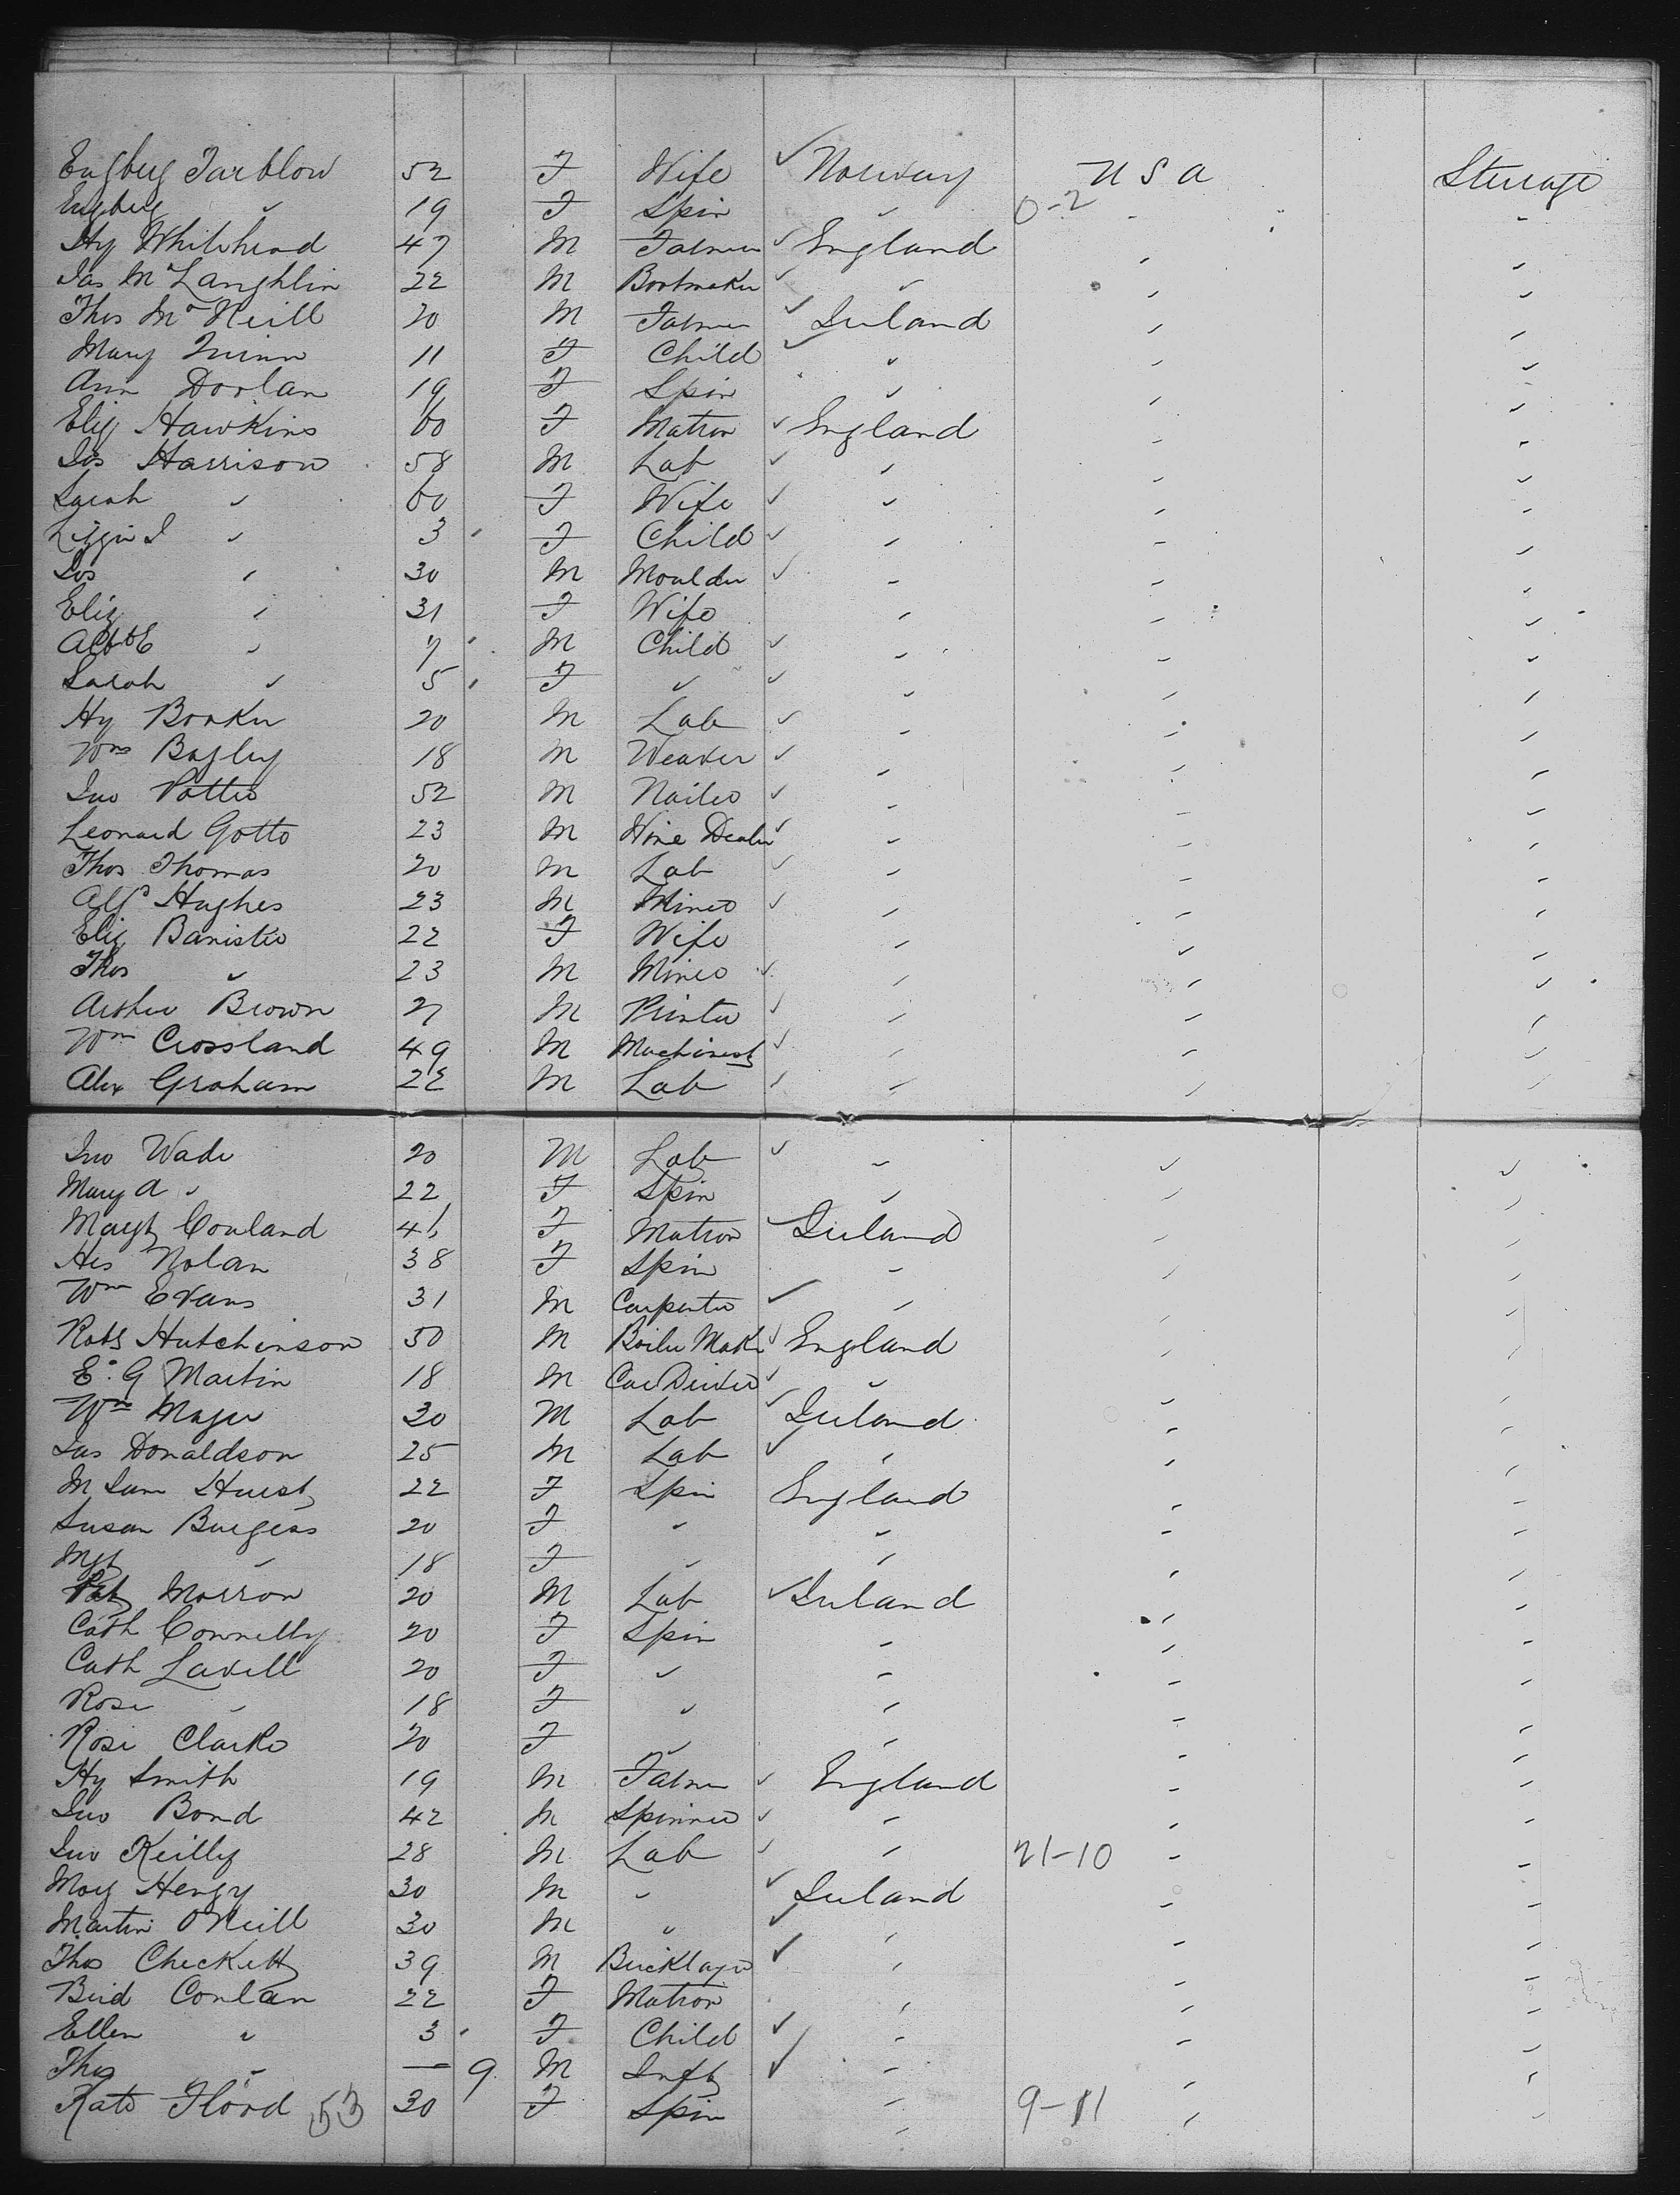 Engberg Tarblow 52 F Wife ✓ Norway U S A Steerage
Engberg " 19 F Spin " 0-2 " "
Hy Whitehead 47 M Farmer ✓ England " "
Jas McLaughlin 22 M Bootmaker ✓ " " "
Thos McNeill 20 M Farmer ✓ Ireland " "
Mary Quinn 11 F Child ✓ " " "
Ann Doolan 19 F Spin " " "
Eliz Hawkins 60 F Matron ✓ England " "
Jos Harrison 58 M Lab ✓ " " "
Sarah " 60 F Wife ✓ " " "
Lizzie J " 3 F Child ✓ " " "
Jos " 30 M Moulder ✓ " " "
Eliz " 31 F Wife " " "
Albt E " 7 M Child ✓ " " "
Sarah " 5 F " ✓ " " "
Hy Booker 20 M Lab ✓ " " "
Wm Bagley 18 M Weaver ✓ " " "
Jno Potter 52 M Nailer ✓ " " "
Leonard Gotto 23 M Wine Dealer ✓ " " "
Thos Thomas 20 M Lab ✓ " " "
Alfd Hughes 23 M Miner ✓ " " "
Eliz Banister 22 F Wife " " "
Thos " 23 M Miner ✓ " " "
Arthur Brown 27 M Printer ✓ " " "
Wm Crossland 49 M Machinest ✓ " " "
Alex Graham 22 M Lab ✓ " " "
Jno Wade 20 M Lab ✓ " " "
Mary A " 22 F Spin " " "
Margt Couland 46 F Matron ✓ Ireland " "
Hes Nolan 38 F Spin " " "
Wm Evans 31 M Carpenter ✓ " " "
Robt Hutchinson 50 M Boiler Maker ✓ England " "
E. G Martin 18 M Car Driver ✓ " " "
Wm Mager 30 M Lab ✓ Ireland " "
Jas Donaldson 25 M Lab ✓ " " "
M Hurst 22 F Spin England " "
Susan Burgess 20 F " " " "
Mgt " 18 F " " " "
Pat Morron 20 M Lab ✓ Ireland " "
Cath Connelly 20 F Spin " " "
Cath Lavell 20 F " " " "
Rose " 18 F " " " "
Rose Clarke 20 F " " " "
Hy Smith 19 M Farmer ✓ England " "
Jno Bond 42 M Spinner ✓ " " "
Jno Keilly 28 M Lab ✓ " 21-10 " "
Hengy 30 M " ✓ Ireland " "
Martin O'Neill 30 M " ✓ " " "
Thos Checketts 39 M Bricklayer ✓ " " "
Brid Conlan 22 F Matron " " "
Ellen " 3 F Child ✓ " " "
Thos " — 9 M Inft ✓ " " "
Kate Flood 53 30 F Spin " 9-11 " "